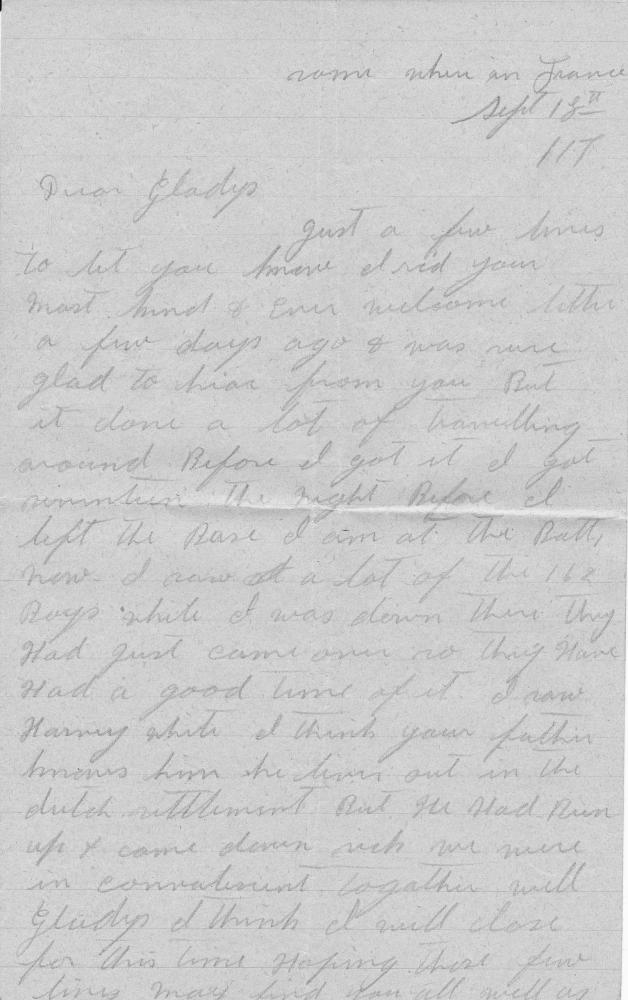 some where in France
Sept 18th
117
Dear Gladys
Just a few lines
to let you know I rsd your
most kind & Ever welcome letter
a few days ago & was sure
glad to hear from you But
it done a lot of travelling
around Before I got it I got
seventeen the night Before I
left the Base I am at the Batt,
now. I saw a lot of the 162
Boys while I was down there they
Had just came over so they Have
Had a good time of it. I saw
Harvey white I think your father
knows him he lives out in the
dutch settlement But He Had Been
up & came down sick we were
in convalesent togather well
Gladys I think I will close
for this time Hoping these few
lines may find you all well as